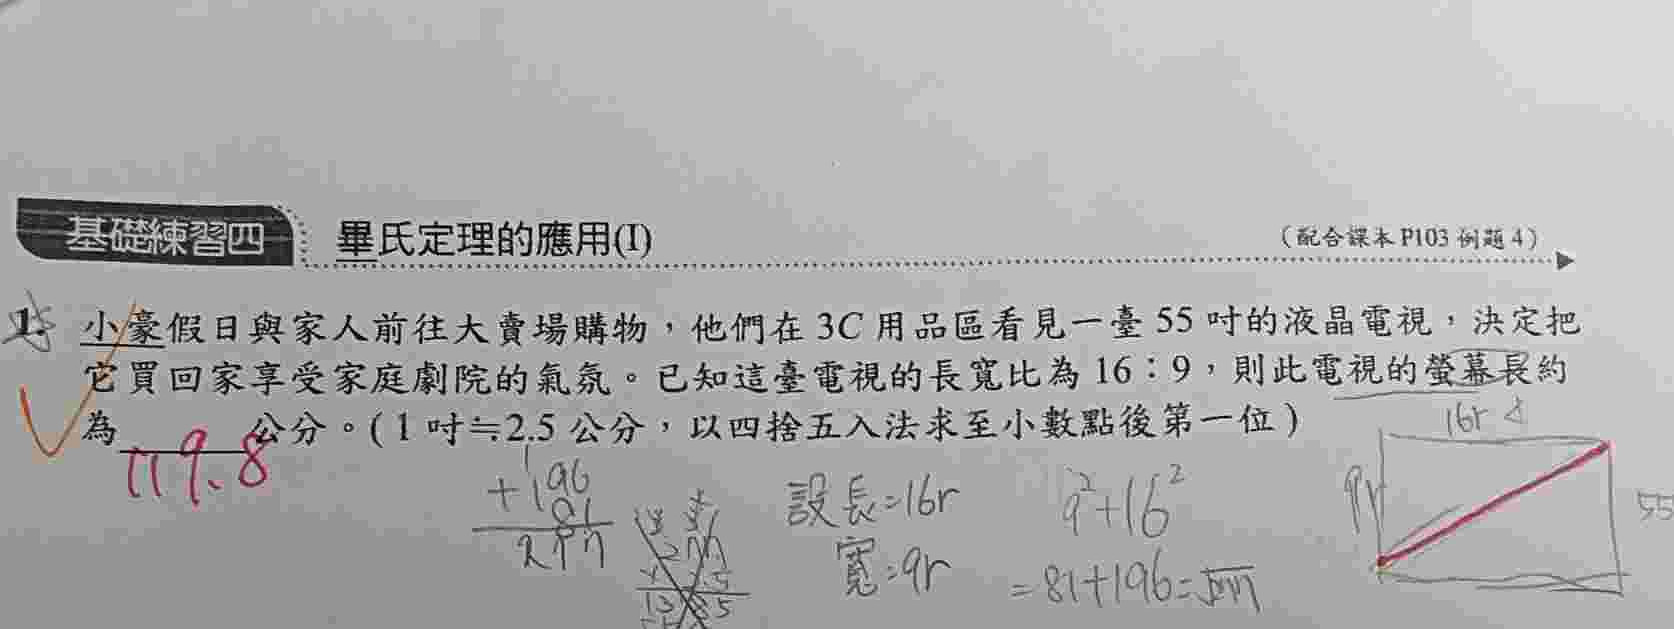 基礎練習四 畢氏定理的應用(I) (配合課本 P103 例題 4)
1. 小豪假日與家人前往大賣場購物，他們在 3C 用品區看見一臺 55 吋的液晶電視，決定把
它買回家享受家庭劇院的氣氛。已知這臺電視的長寬比為 16：9，則此電視的螢幕長約
為 公分。(1 吋≒2.5 公分，以四捨五入法求至小數點後第一位)
119.8
16r
9r
55
196
+ 81
277
設長=16r
寬=9r
9²+16²
=81+196=√277